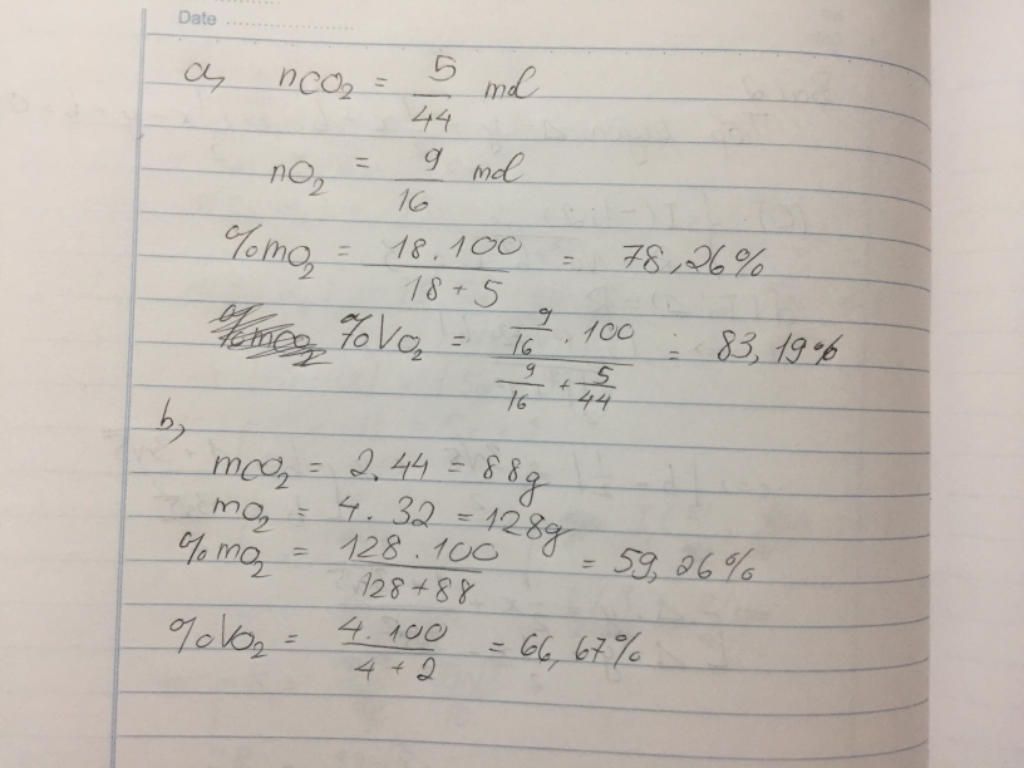 Date
a, nCO2 = 5/44 mol
nO2 = 9/16 mol
%mO2 = 18.100/18+5 = 78,26%
%mCO2 %VO2 = 9/16 . 100 / 9/16 + 5/44 = 83,19%
b,
mCO2 = 2.44 = 88g
mO2 = 4.32 = 128g
%mO2 = 128.100/128+88 = 59,26%
%VO2 = 4.100/4+2 = 66,67%